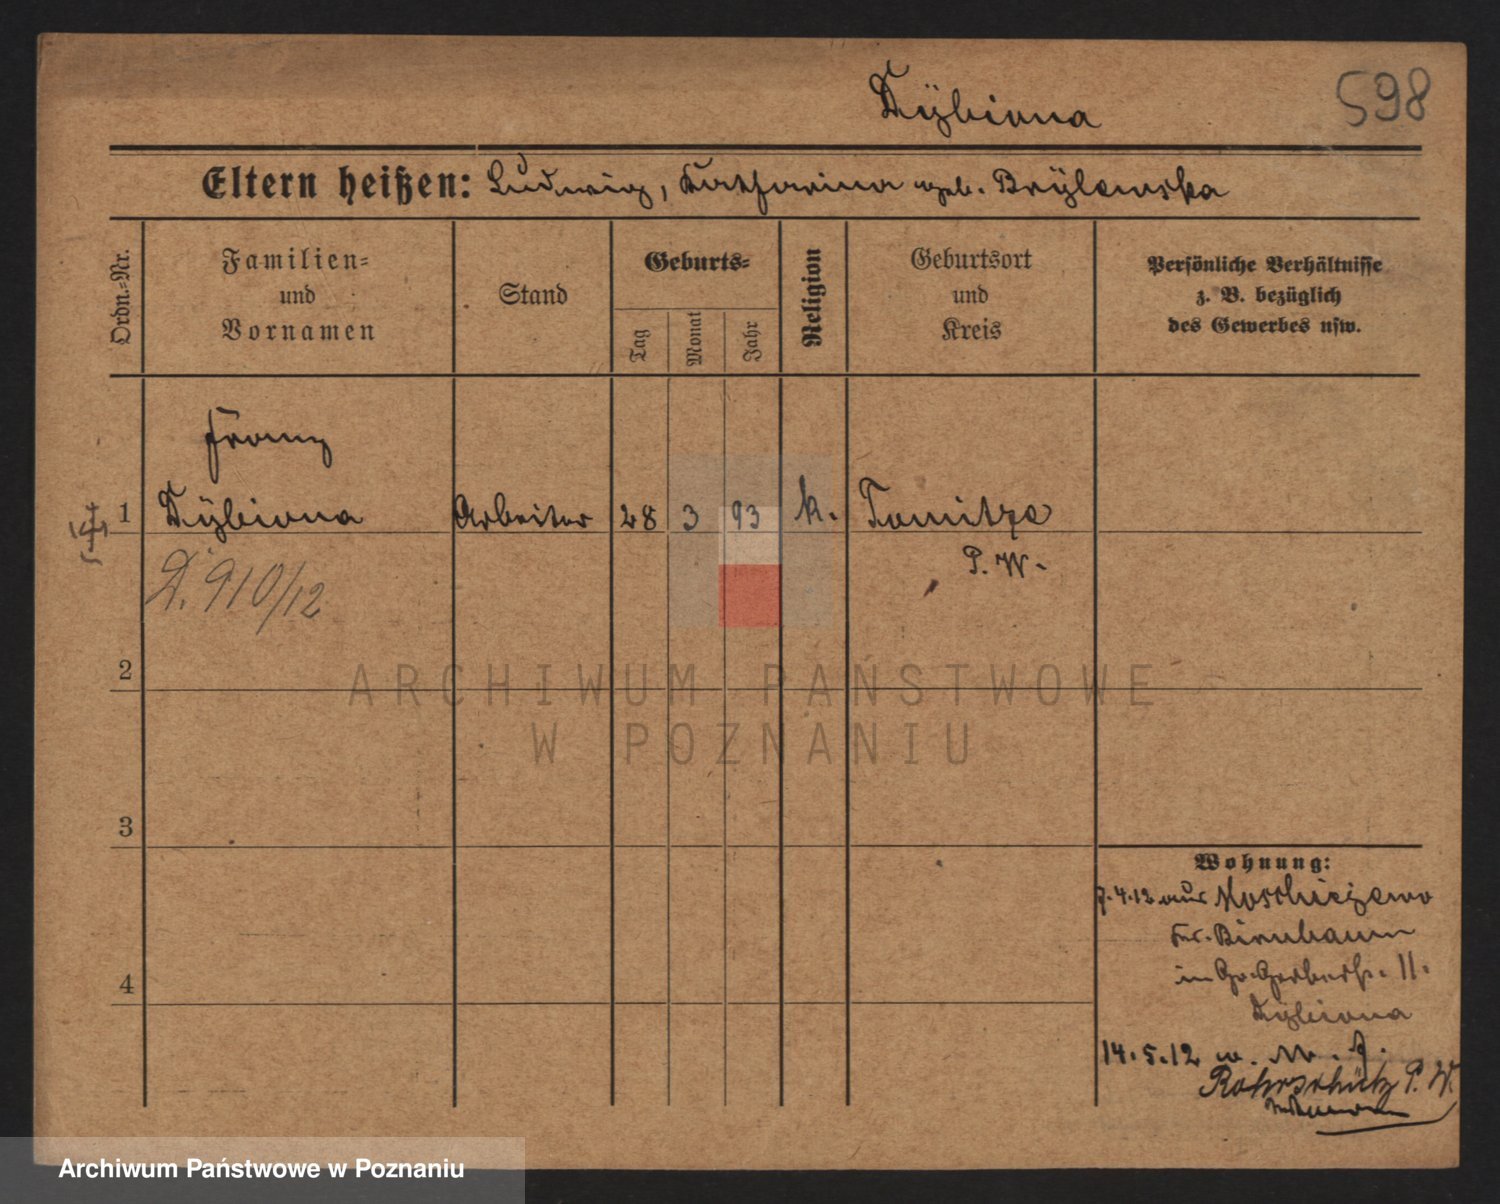 Dÿbiona
598
Eltern heißen: Ludwig, Katharina geb. Brÿlewska
Ordn.-Nr.
Familien-
und
Vornamen
Stand
Geburts-
Tag
Monat
Jahr
Religion
Geburtsort
und
Kreis
Persönliche Verhältnisse
z. B. bezüglich
des Gewerbes usw.
Franz
1 Dÿbiona Arbeiter 28 3 93 k. Tomitze
P. W.
D. 910/12
2
ARCHIWUM PAŃSTWOWE
W POZNANIU
3
4
Wohnung:
7.4.12 aus
Kr. Birnbaum
in Gr. Gerberstr. 11.
Dÿbiona
14.5.12
Rohrschütz P. W.
Archiwum Państwowe w Poznaniu